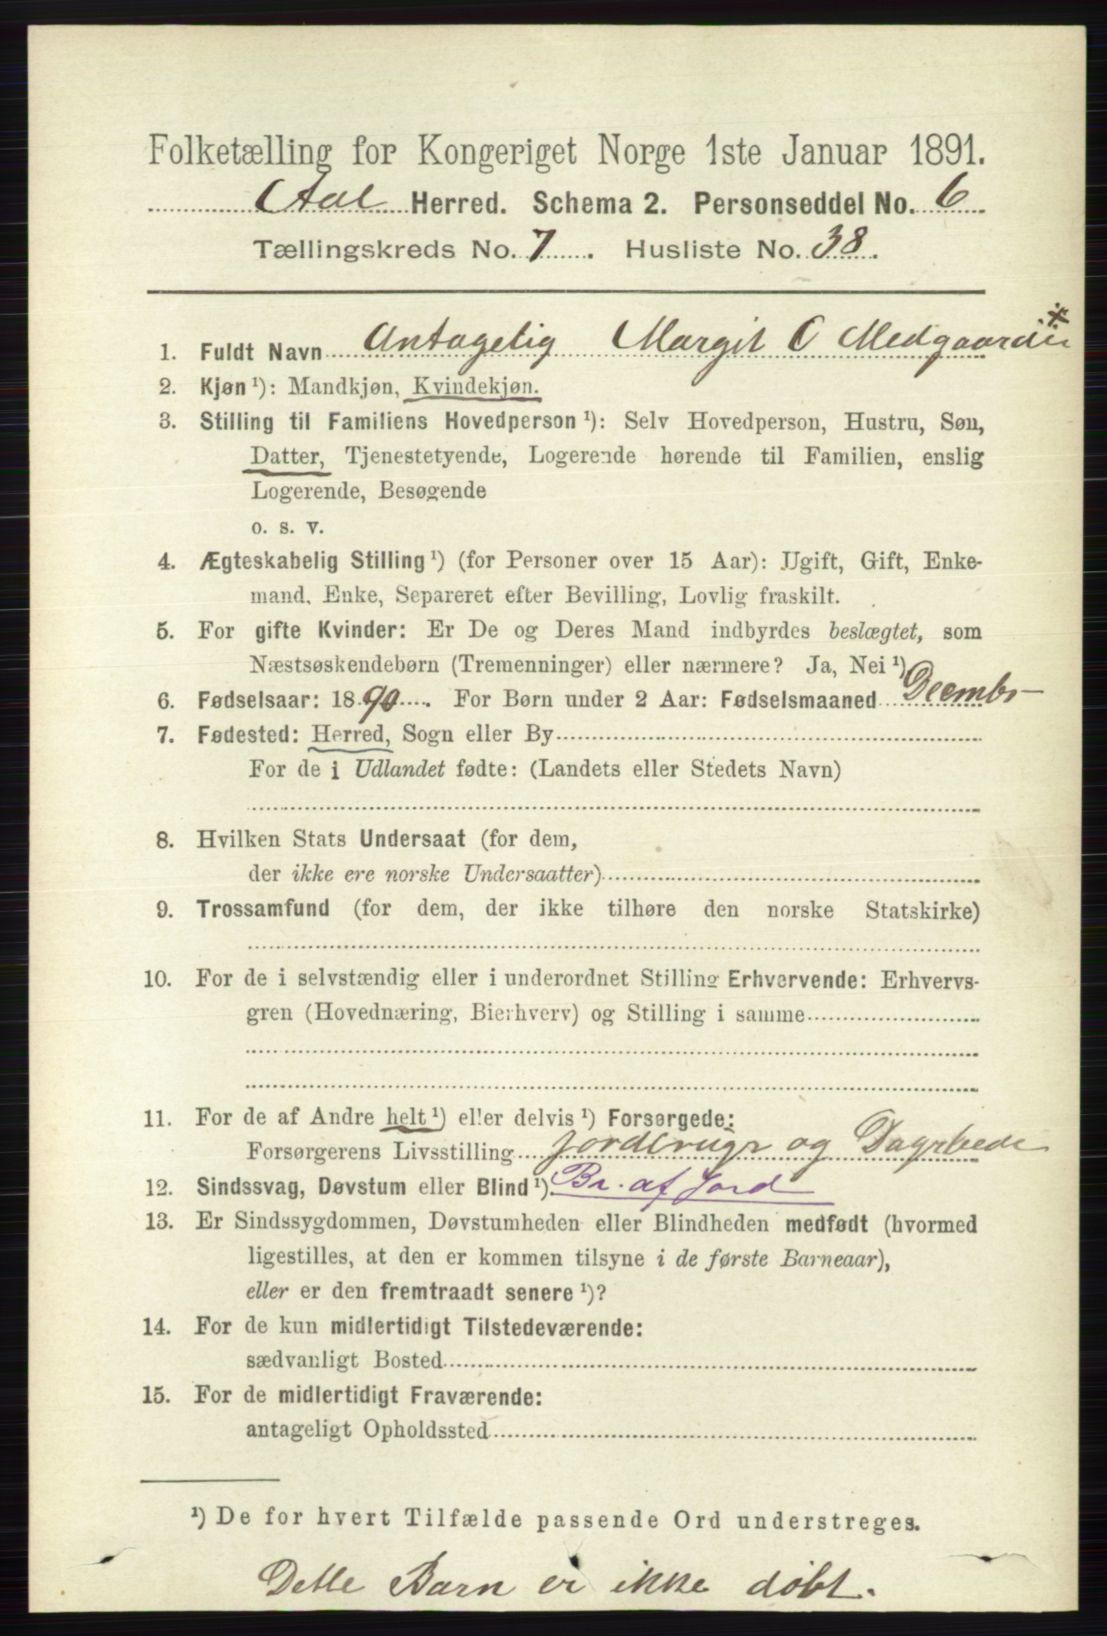 Folketælling for Kongeriget Norge 1ste Januar 1891.
Aal Herred. Schema 2. Personseddel No. 6
Tællingskreds No. 7. Husliste No. 38.
1. Fuldt Navn Antagelig Margit O Medgaarden *
2. Kjøn ¹): Mandkjøn, Kvindekjøn.
3. Stilling til Familiens Hovedperson ¹): Selv Hovedperson, Hustru, Søn,
Datter, Tjenestetyende, Logerende hørende til Familien, enslig
Logerende, Besøgende
o. s. v.
4. Ægteskabelig Stilling ¹) (for Personer over 15 Aar): Ugift, Gift, Enke-
mand, Enke, Separeret efter Bevilling, Lovlig fraskilt.
5. For gifte Kvinder: Er De og Deres Mand indbyrdes beslægtet, som
Næstsøskendebørn (Tremenninger) eller nærmere? Ja, Nei ¹)
6. Fødselsaar: 1890. For Børn under 2 Aar: Fødselsmaaned Decembr
7. Fødested: Herred, Sogn eller By
For de i Udlandet fødte: (Landets eller Stedets Navn)
8. Hvilken Stats Undersaat (for dem,
der ikke ere norske Undersaatter)
9. Trossamfund (for dem, der ikke tilhøre den norske Statskirke)
10. For de i selvstændig eller i underordnet Stilling Erhvervende: Erhvervs-
gren (Hovednæring, Bierhverv) og Stilling i samme
11. For de af Andre helt ¹) eller delvis ¹) Forsørgede:
Forsørgerens Livsstilling og
12. Sindssvag, Døvstum eller Blind ¹) Br. af Jord
13. Er Sindssygdommen, Døvstumheden eller Blindheden medfødt (hvormed
ligestilles, at den er kommen tilsyne i de første Barneaar),
eller er den fremtraadt senere ¹)?
14. For de kun midlertidigt Tilstedeværende:
sædvanligt Bosted
15. For de midlertidigt Fraværende:
antageligt Opholdssted
¹) De for hvert Tilfælde passende Ord understreges.
Dette Barn er ikke døbt.